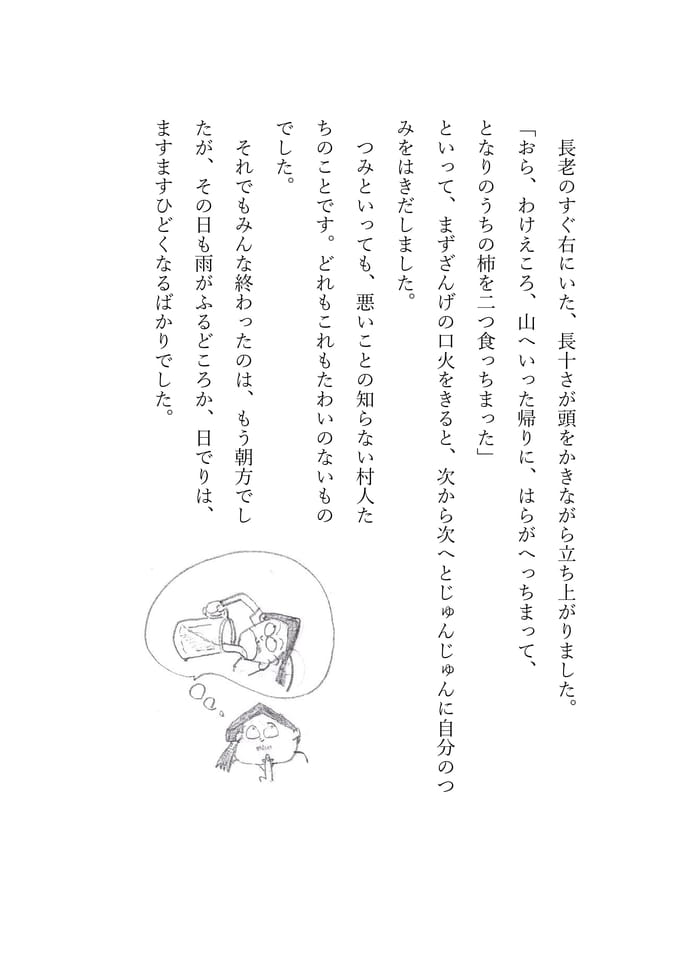 長老のすぐ右にいた、長十さが頭をかきながら立ち上がりました。
「おら、わけえころ、山へいった帰りに、はらがへっちまって、
となりのうちの柿を二つ食っちまった」
といって、まずざんげの口火をきると、次から次へとじゅんじゅんに自分のつ
みをはきだしました。
つみといっても、悪いことの知らない村人た
ちのことです。どれもこれもたわいのないもの
でした。
それでもみんな終わったのは、もう朝方でし
たが、その日も雨がふるどころか、日でりは、
ますますひどくなるばかりでした。